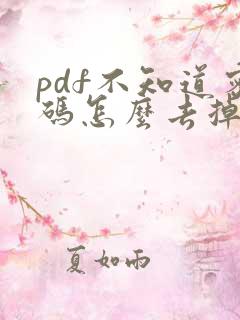 pdf不知道密
碼怎麼去掉
夏如雨